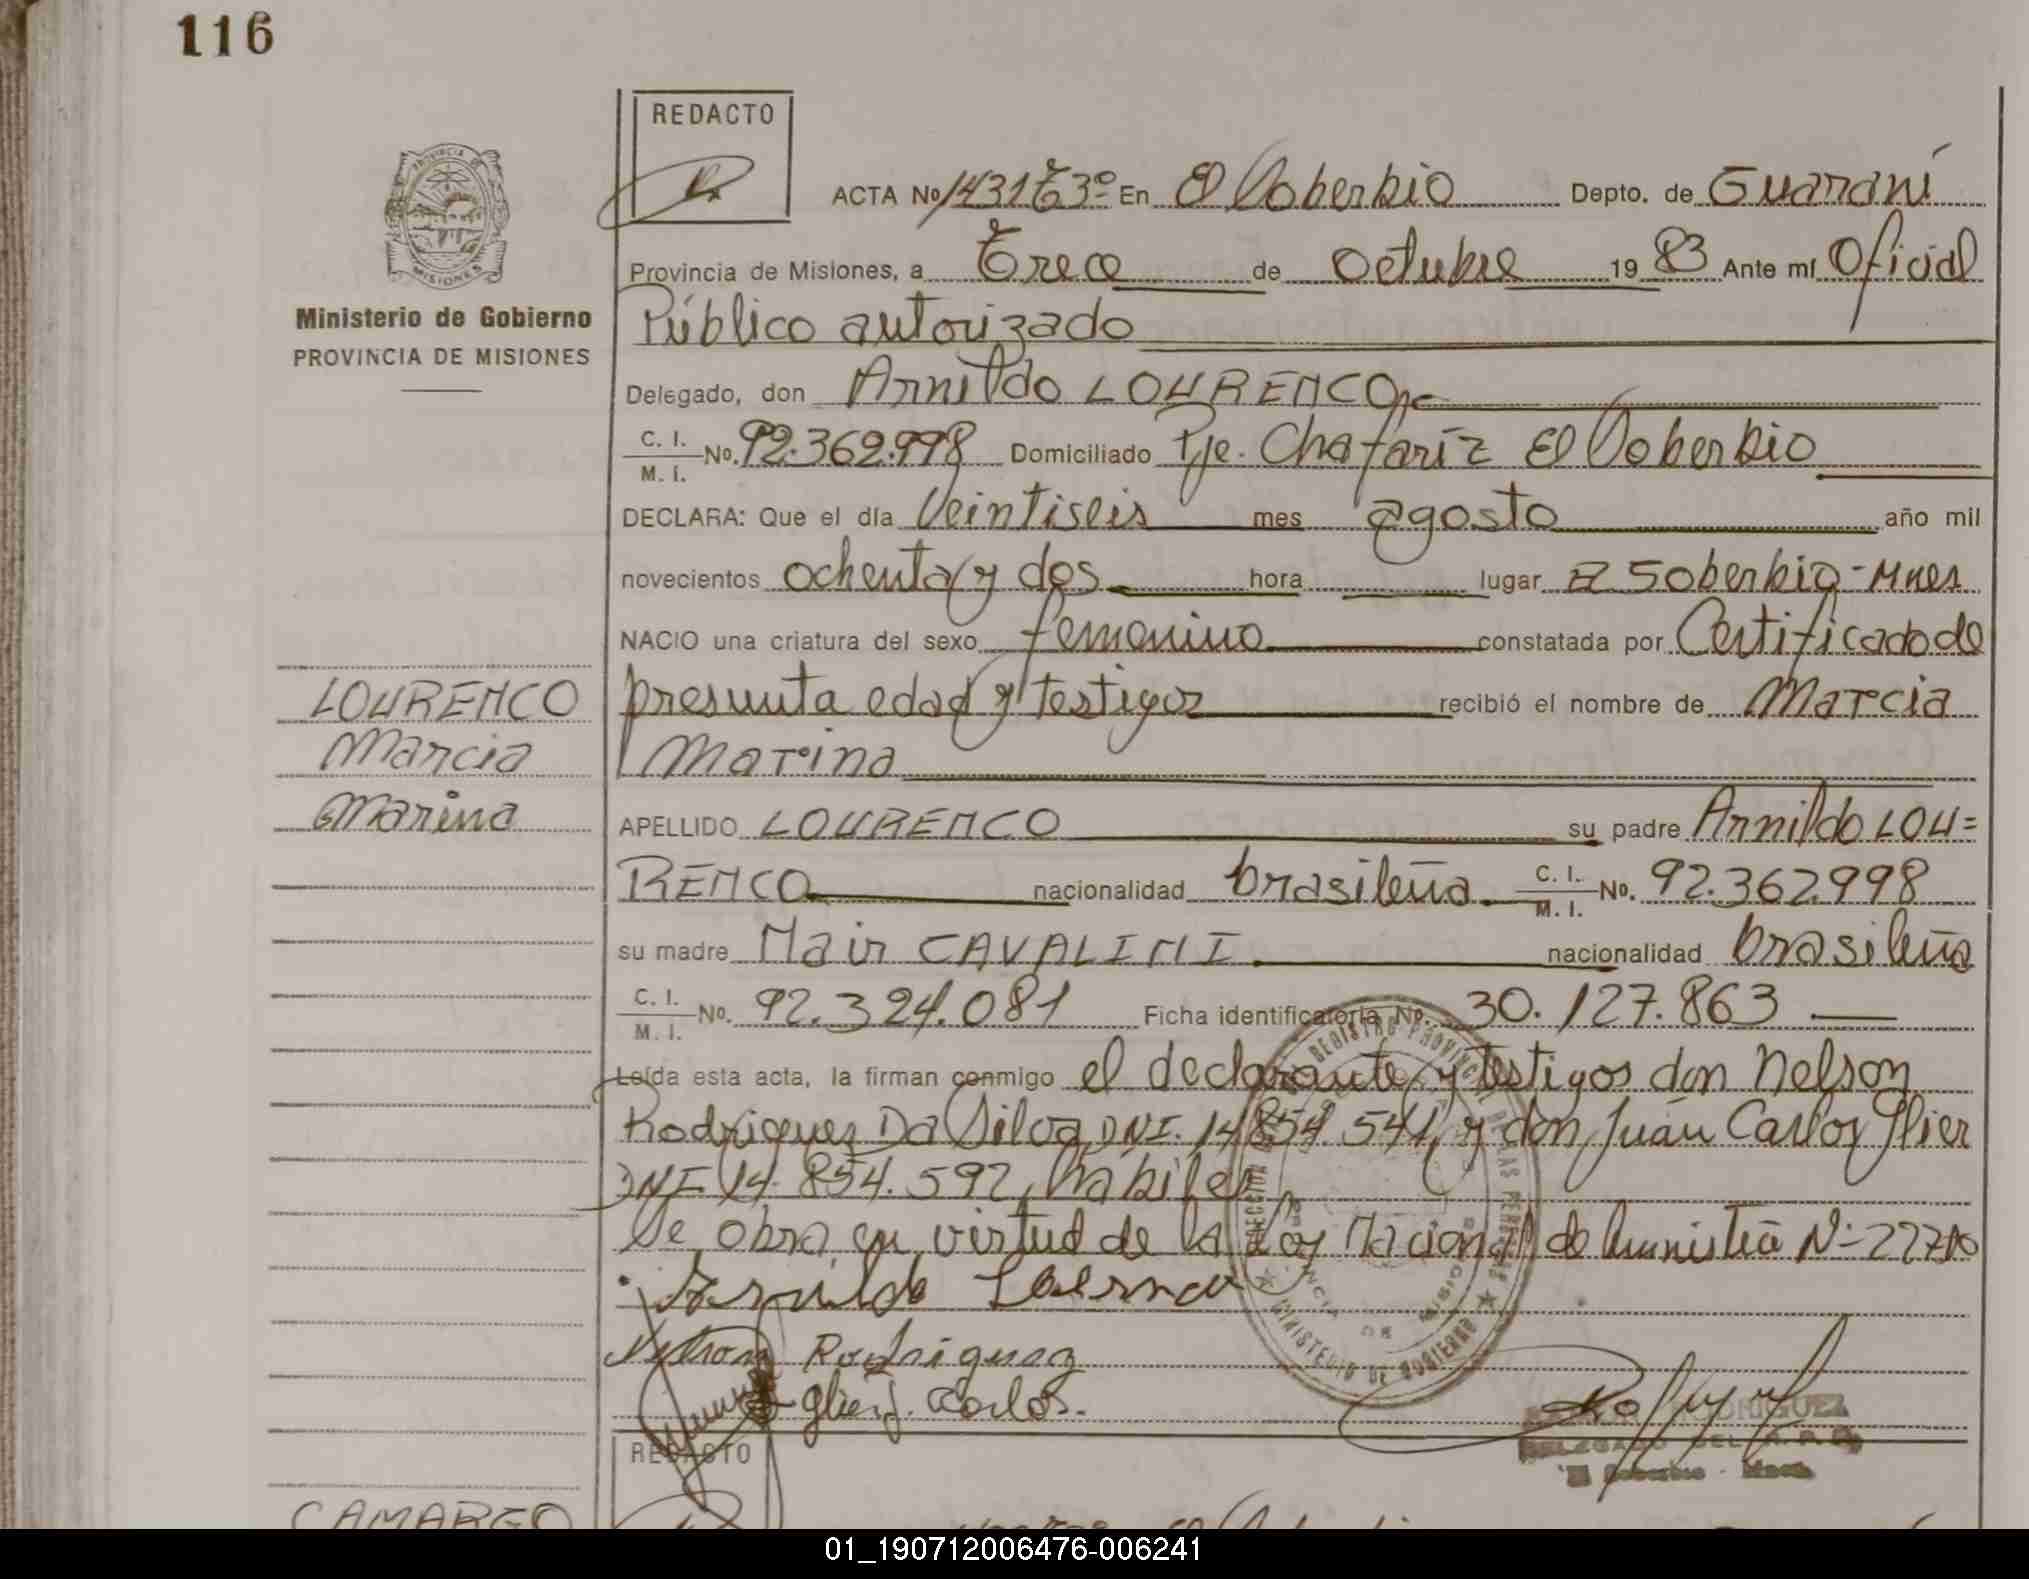 116
REDACTO
PROVINCIA DE
MISIONES
Ministerio de Gobierno
PROVINCIA DE MISIONES
ACTA No 1431 T3º En El Soberbio Depto. de Guaraní
Provincia de Misiones, a Trece de octubre 19 83 Ante mí Oficial
Público autorizado
Delegado, don Arnildo LOURENCO,-
C. I. M. I. No. 92.362.998 Domiciliado Pje. Chafariz El Soberbio
DECLARA: Que el día Veintiseis mes agosto año mil
novecientos ochenta y dos hora lugar El Soberbio-Mnes
NACIO una criatura del sexo femenino constatada por Certificado de
presunta edad y testigos recibió el nombre de Marcia
Marina
LOURENCO
Marcia
Marina
APELLIDO LOURENCO su padre Arnildo LOU=
RENCO nacionalidad brasileña C. I. M. I. No. 92.362.998
su madre Nair CAVALINI nacionalidad brasileña
C. I. M. I. No. 92.324.081 Ficha identificatoria No. 30.127.863
Leída esta acta, la firman conmigo el declarante y testigos don Nelson
Rodriguez Da Silva, DNI. 14.854.541, y don Juan Carlos Glier
DNI 14.854.592, habiles
Se obra en virtud de la Ley Nacional de Amnistia N-
Nelson Rodriguez
Glier J. Carlos.
RODRIGUEZ
DELEGADO DEL R. P.
El Soberbio - Mnes
REDACTO
CAMARGO
01_190712006476-006241